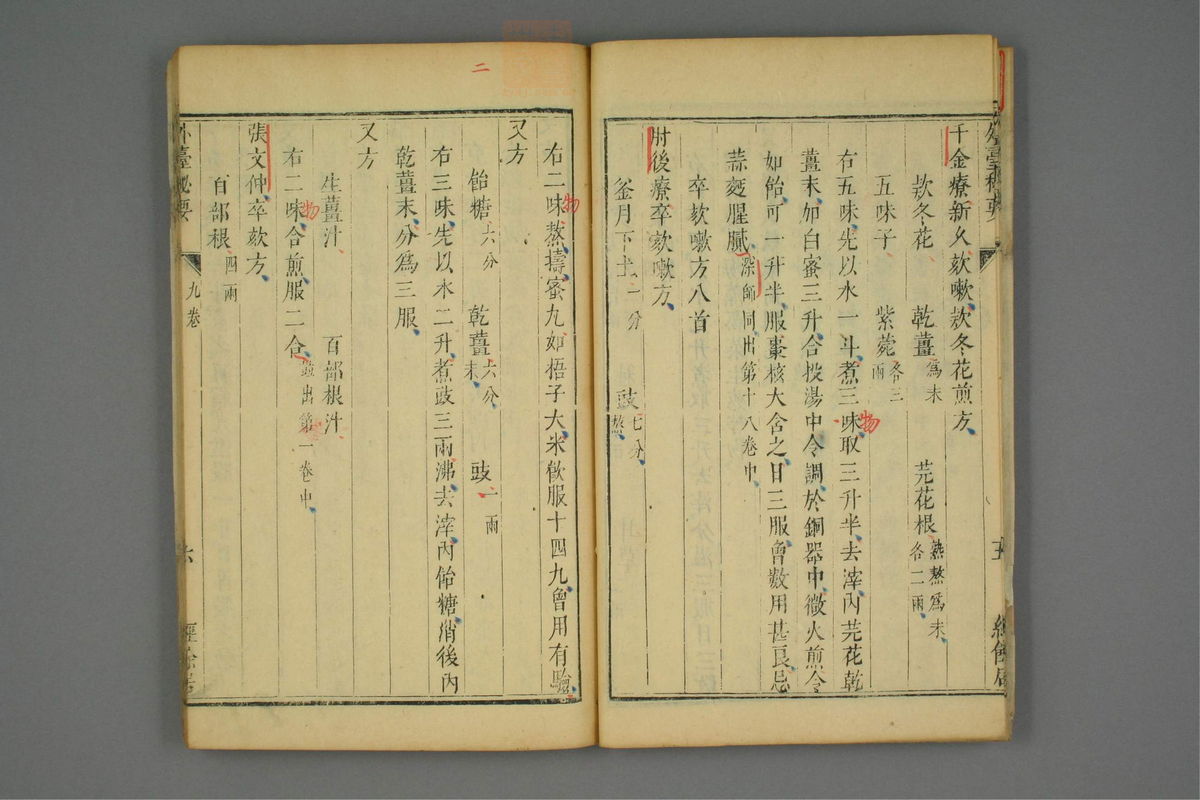 千金療新久欬嗽欵冬花煎方
欵冬花 乾薑為末 芫花根熬熬為末各二兩
五味子 紫菀各三兩
右五味先以水一斗煮三味取三升半去滓內芫花乾
薑末加白蜜三升合投湯中令調於銅器中微火煎令
如飴可一升半服棗核大含之日三服曾數用甚良忌
蒜麪腥膩深師同出第十八卷中
卒欬嗽方八首
肘後療卒欬嗽方
釜月下土一分 豉七分熬
二
右二味熬擣蜜丸如梧子大米飲服十四丸曾用有驗
又方
飴糖六分 乾薑六分末 豉一兩
右三味先以水二升煮豉三兩沸去滓內飴糖消後內
乾薑末分為三服
又方
生薑汁 百部根汁
右二味合煎服二合並出第一卷中
張文仲卒欬方
百部根四兩
外臺秘要 九卷 六
物
物
物